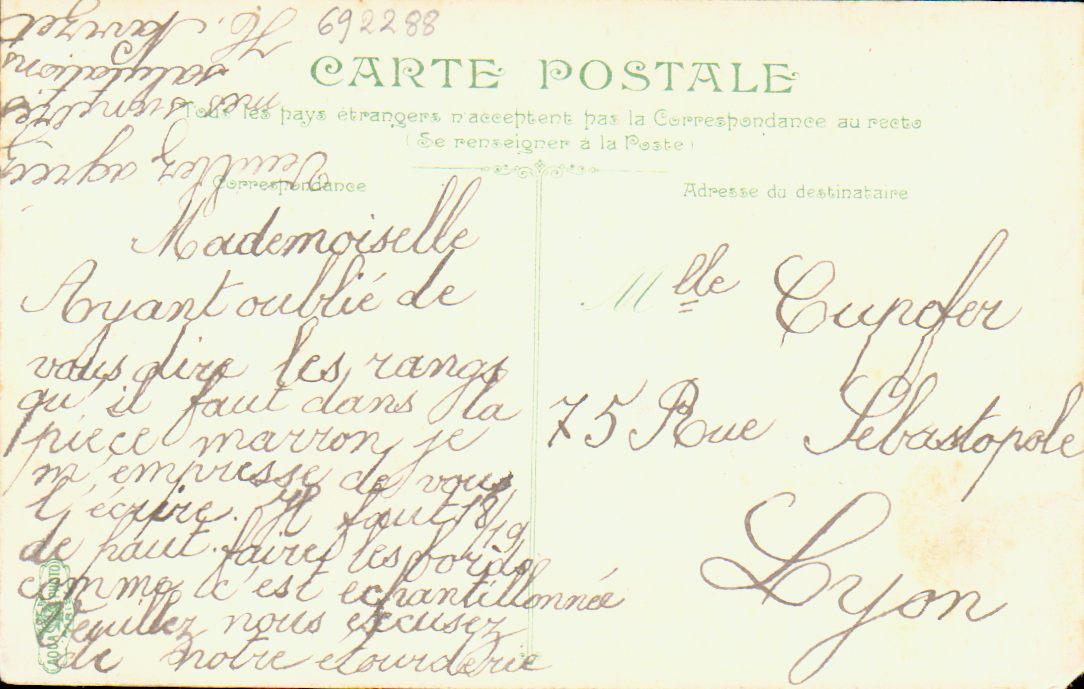 692288
CARTE POSTALE
Tous les pays étrangers n'acceptent pas la Correspondance au recto
(Se renseigner à la Poste)
Correspondance
Adresse du destinataire
Mademoiselle
Ayant oublié de
vous dire les rangs
qu'il faut dans la
pièce marron je
m'empresse de vous
l'écrire. Il faut 18/19
de haut. faire les bords
comme c'est echantillonnée
Veuillez nous excusez
de notre etourderie
Veuillez agréez
mes sincères
salutations
H.
Mlle Cupfer
75 Rue Sébastopole
Lyon
PHOTO